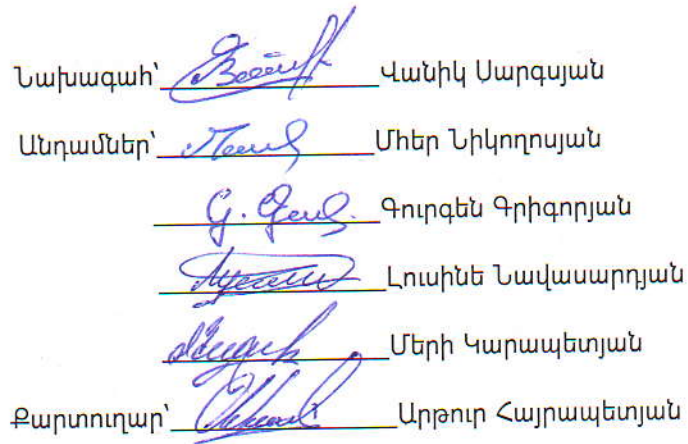 Նախագահ՝ Վանիկ Սարգսյան
Անդամներ՝ Մհեր Նիկողոսյան
Գուրգեն Գրիգորյան
Լուսինե Նավասարդյան
Մերի Կարապետյան
Քարտուղար՝ Արթուր Հայրապետյան